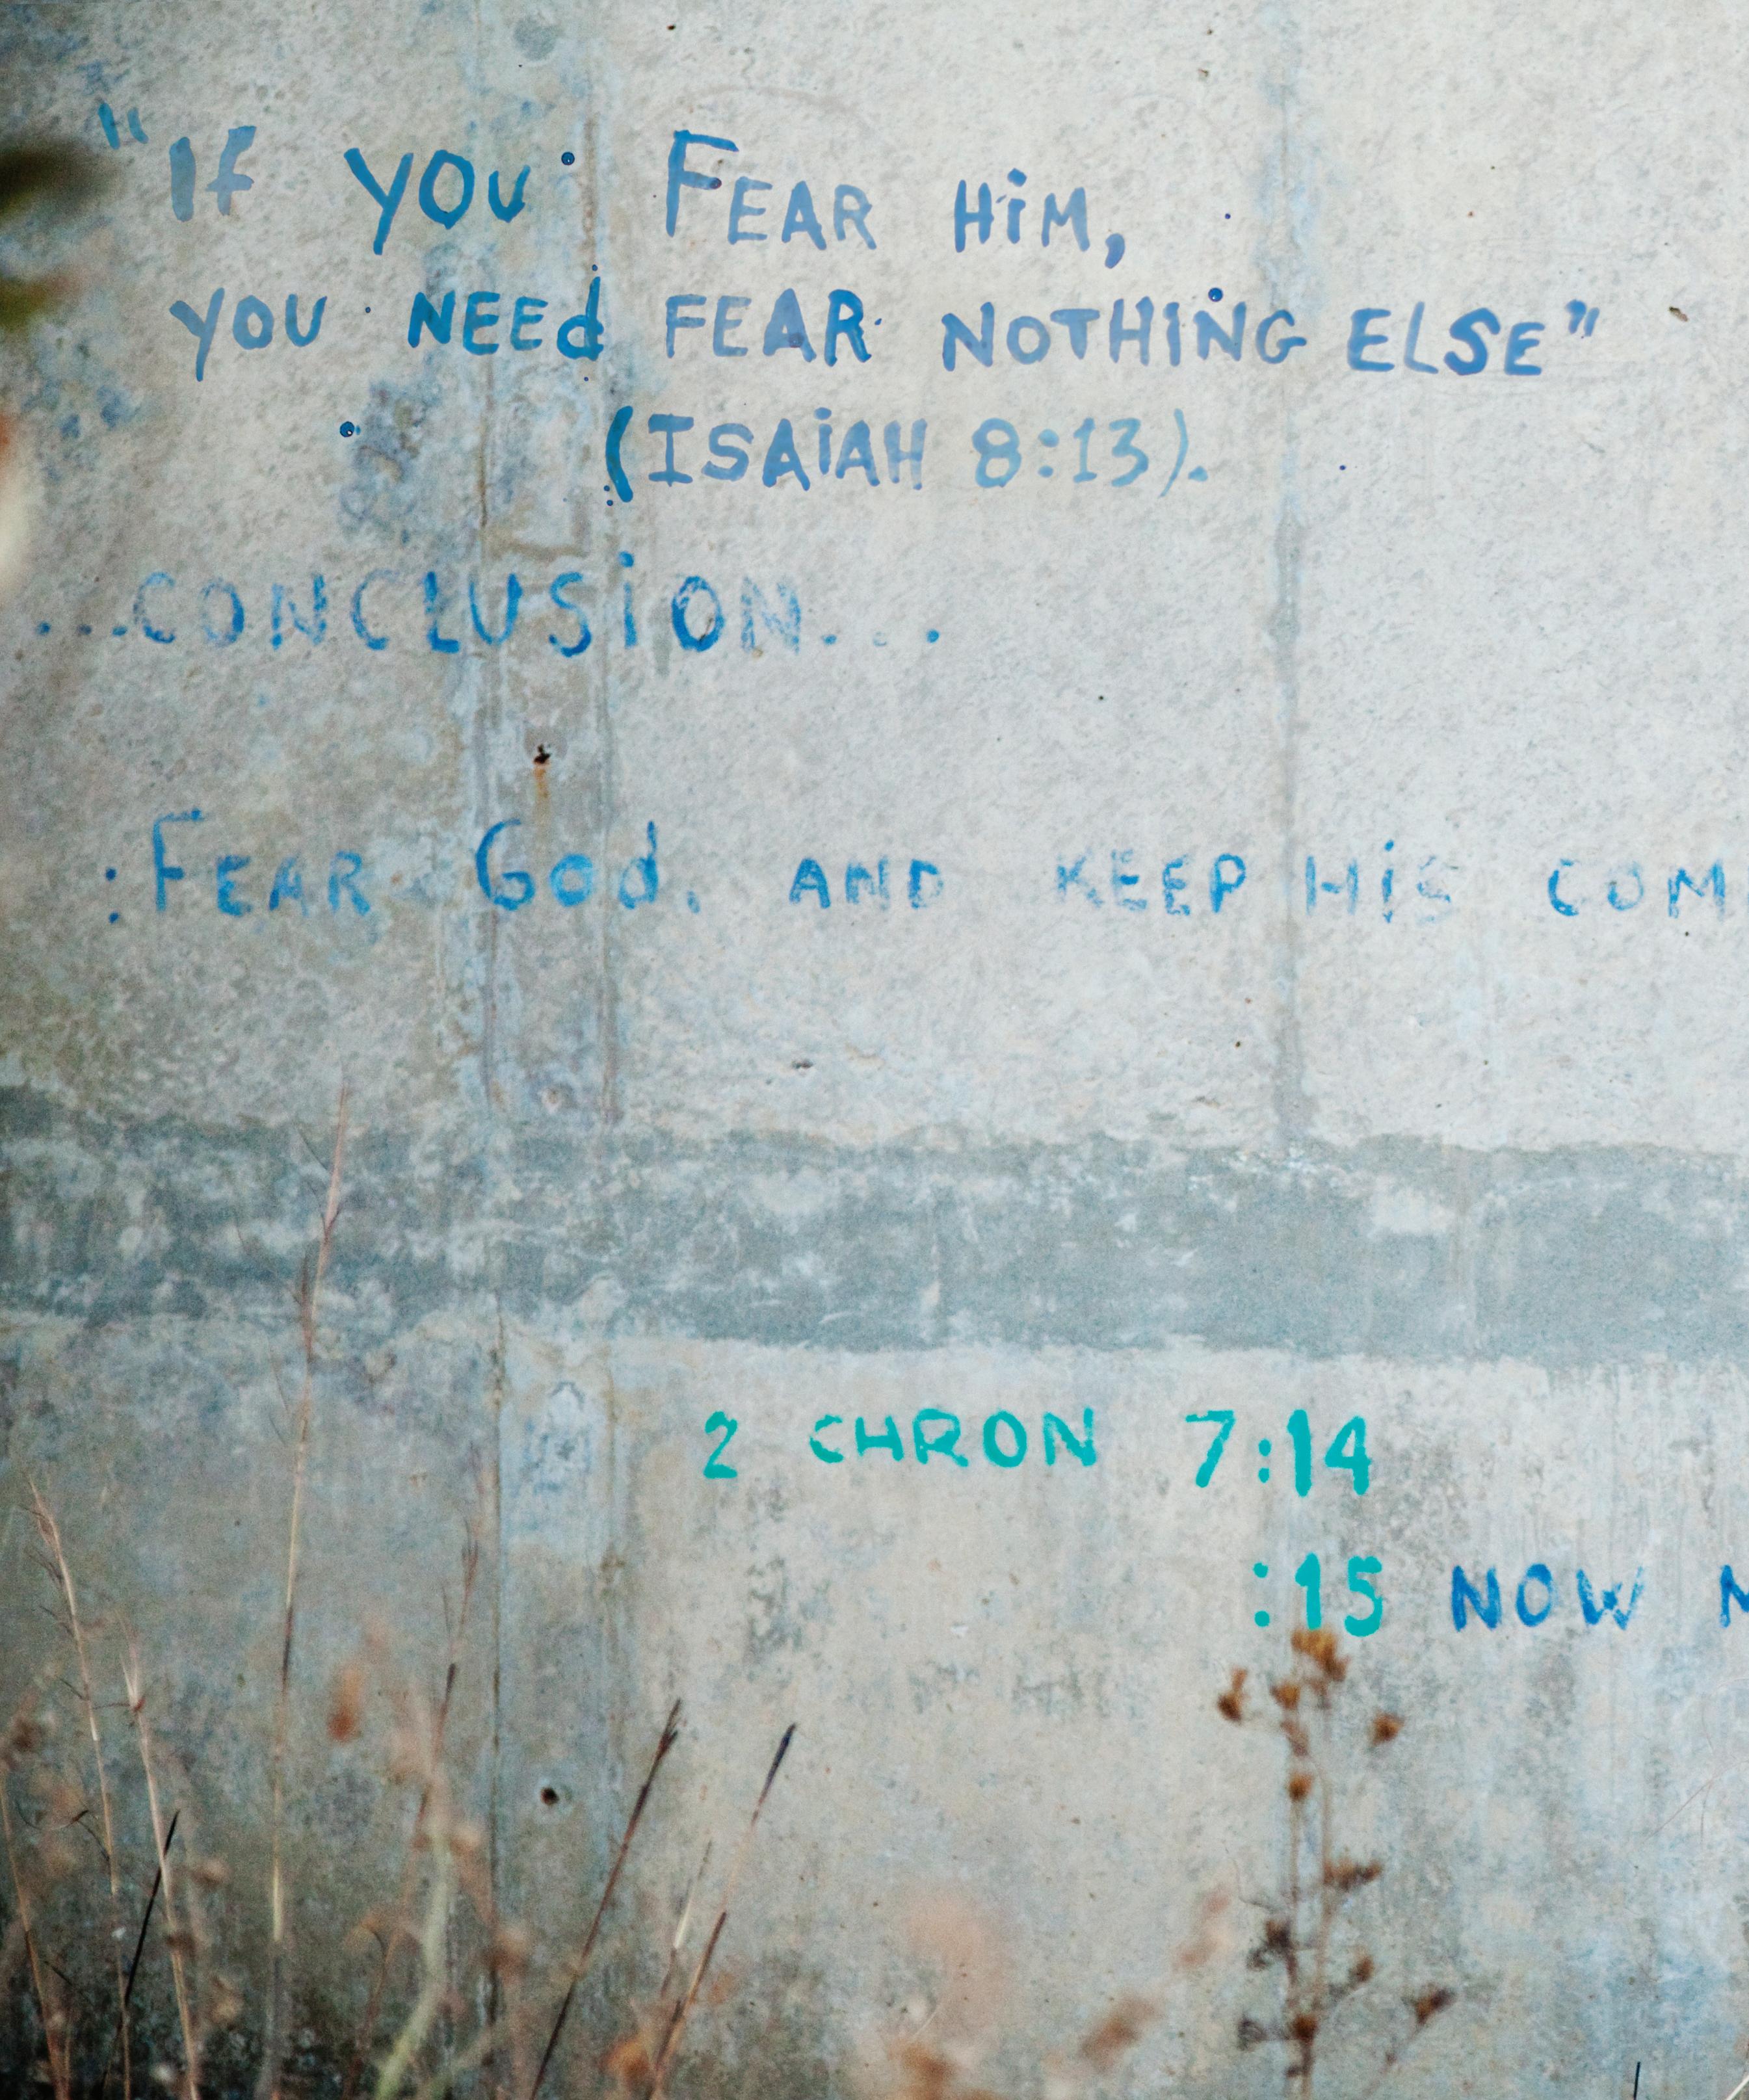 "If you FEAR HiM,
YOU NEEd FEAR NOTHiNG ELSE"
(ISAiAH 8:13).
...CONCLUSiON...
:FEAR God, AND KEEP HiS COM
2 CHRON 7:14
:15 NOW